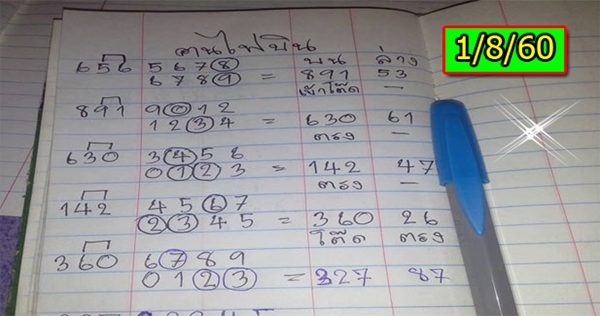 คนไฟบิน
1/8/60
บน ล่าง
656 5678
6789 = 891 53
เข้าโต๊ด —
891 9012
1234 = 630 61
ตรง —
630 3456
0123 = 142 47
ตรง —
142 4567
2345 = 360 26
โต๊ด ตรง
360 6789
0123 = 327 87